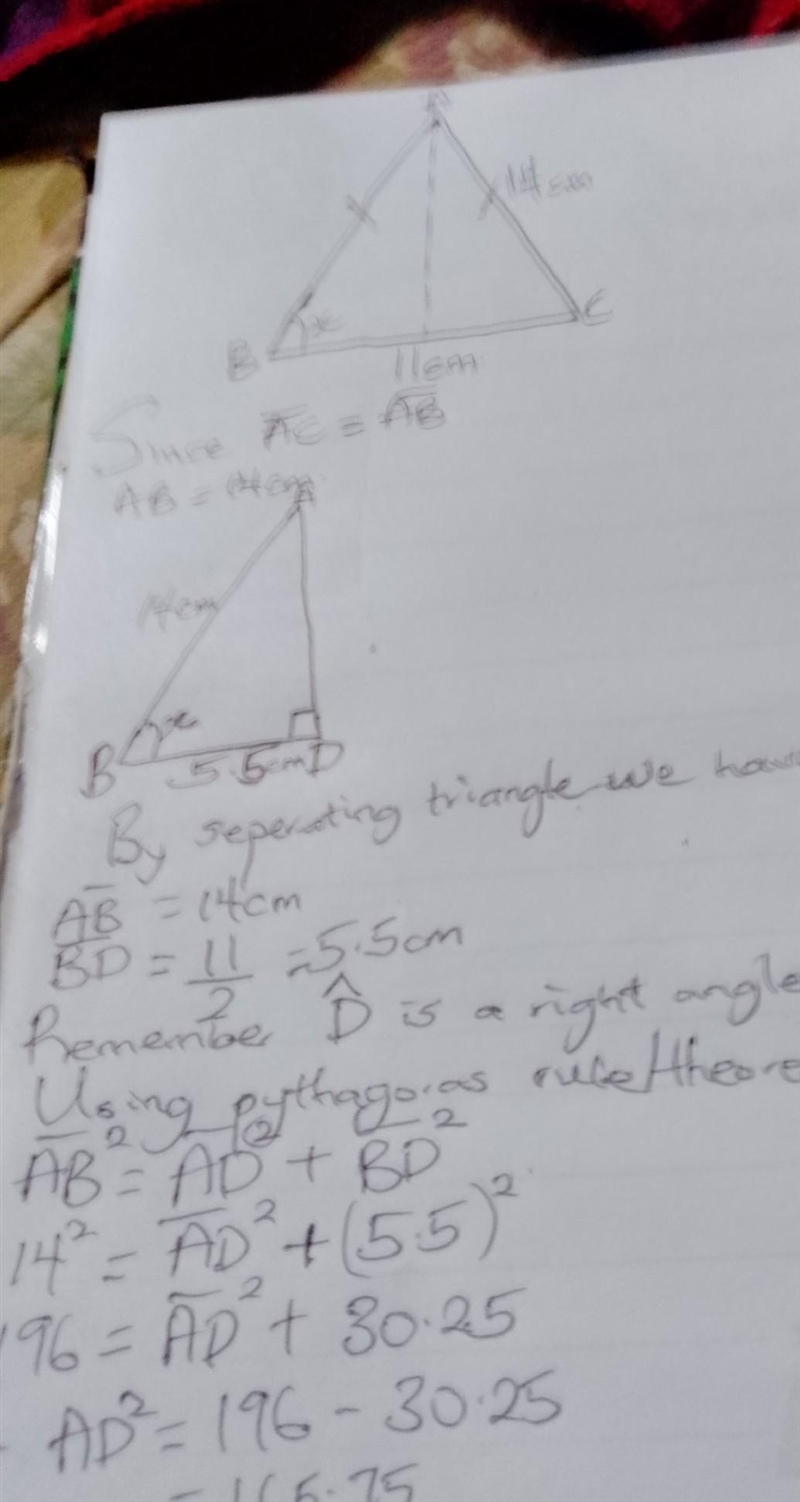 A
14cm
x
B
C
11cm
Since A̅C̅ = A̅B̅
AB = 14cm
A
14cm
x
B
5.5cm D
By seperating triangle we have
A̅B̅ = 14cm
B̅D̅ = 11/2 = 5.5cm
Remember D̂ is a right angle
Using pythagoras rule/theore
A̅B̅² = A̅D̅² + B̅D̅²
14² = A̅D̅² + (5.5)²
196 = A̅D̅² + 30.25
AD² = 196 - 30.25
= 165.75